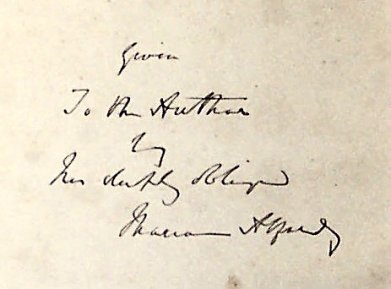 Given
To the Author
by
her deeply obliged
Marian Alford